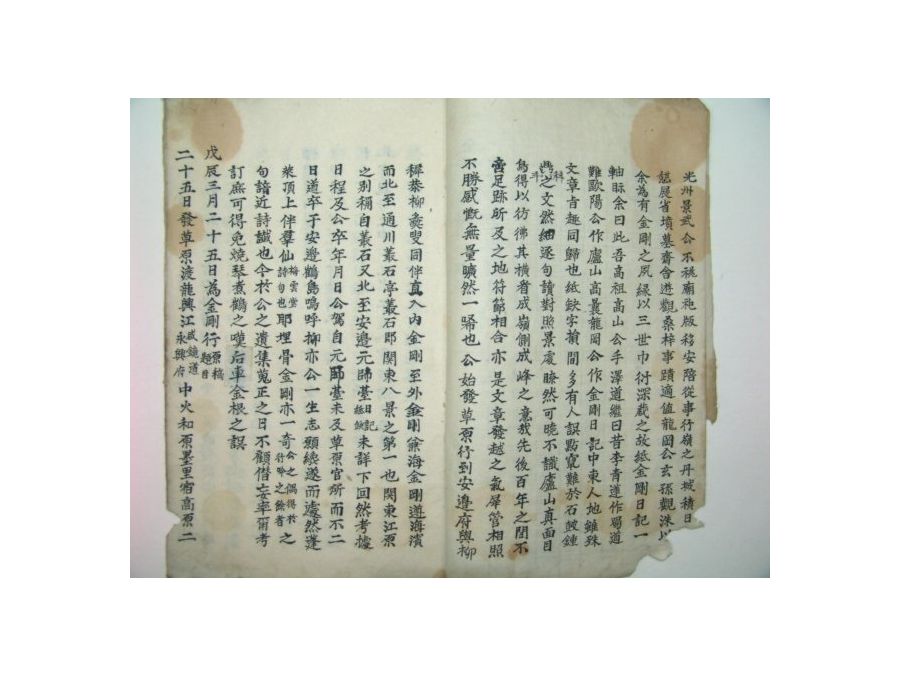 光州景武公不祧廟祀版移安陪從事行嶺之丹城積日
展省墳墓齋舍遊觀桑梓事蹟適值龍岡公玄孫觀洙以
余為有金剛之夙緣以三世巾衍深藏之故紙金剛日記一
軸眎余曰此吾高祖高山公手澤道繼曰昔李青蓮作蜀道
難歐陽公作廬山高曩龍岡公作金剛日記中東人地雖殊
文章旨趣同歸也紙缺字損間多有人誤點竄難於石鼓鍾
鼎之文然細逐句讀對照景處瞭然可曉不識廬山真面目
烏得以彷彿其橫者成嶺側成峰之意哉先後百年之間不
啻足跡所及之地符節相合亦是文章發越之氣犀管相照
不勝感慨無量曠然一唏也公始發草原行到安邊府與柳
穉恭柳彝叟同伴直入內金剛至外金剛觧海金剛遵海濱
而北至通川叢石亭叢石郎関東八景之第一也関東江原
之別稱自叢石又北至安邊元師臺日記紙缺未詳下回然考據
日程及公卒年月日公駕自元師臺未及草原官所而不二
日遒卒于安邊鶴島嗚呼抑亦公一生志願纔遂而遽然蓬
萊頂上伴羣仙梅雲堂詩句也耶埋骨金剛亦一奇公之偶得於行吟之餘者之
句諳近詩讖也今於公之遺集蒐正之日不顧僣妄率甭考
訂庶可得免燒琴煮鶴之嘆后車金根之誤
戊辰三月二十五日為金剛行原稿題目
二十五日發草原渡龍興江咸鏡道永興府中火和原墨里宿高原二